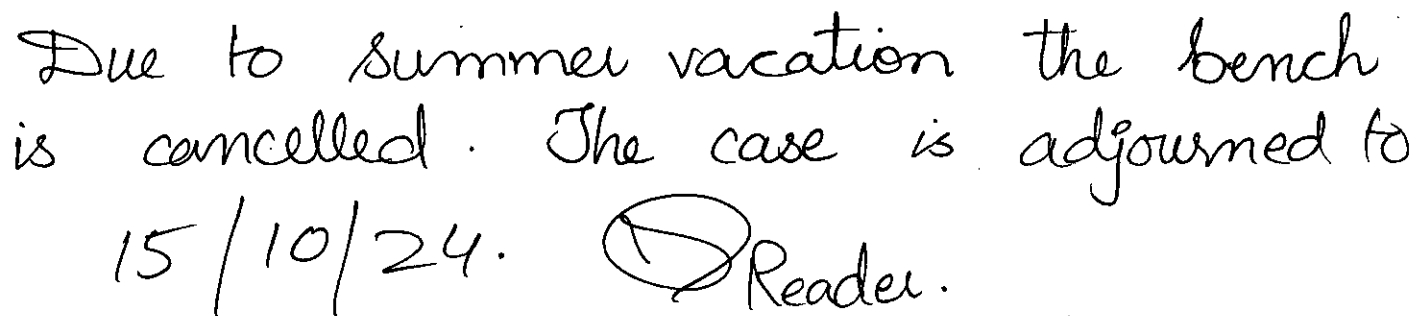 Due to summer vacation the bench
is cancelled. The case is adjourned to
15/10/24. Reader.